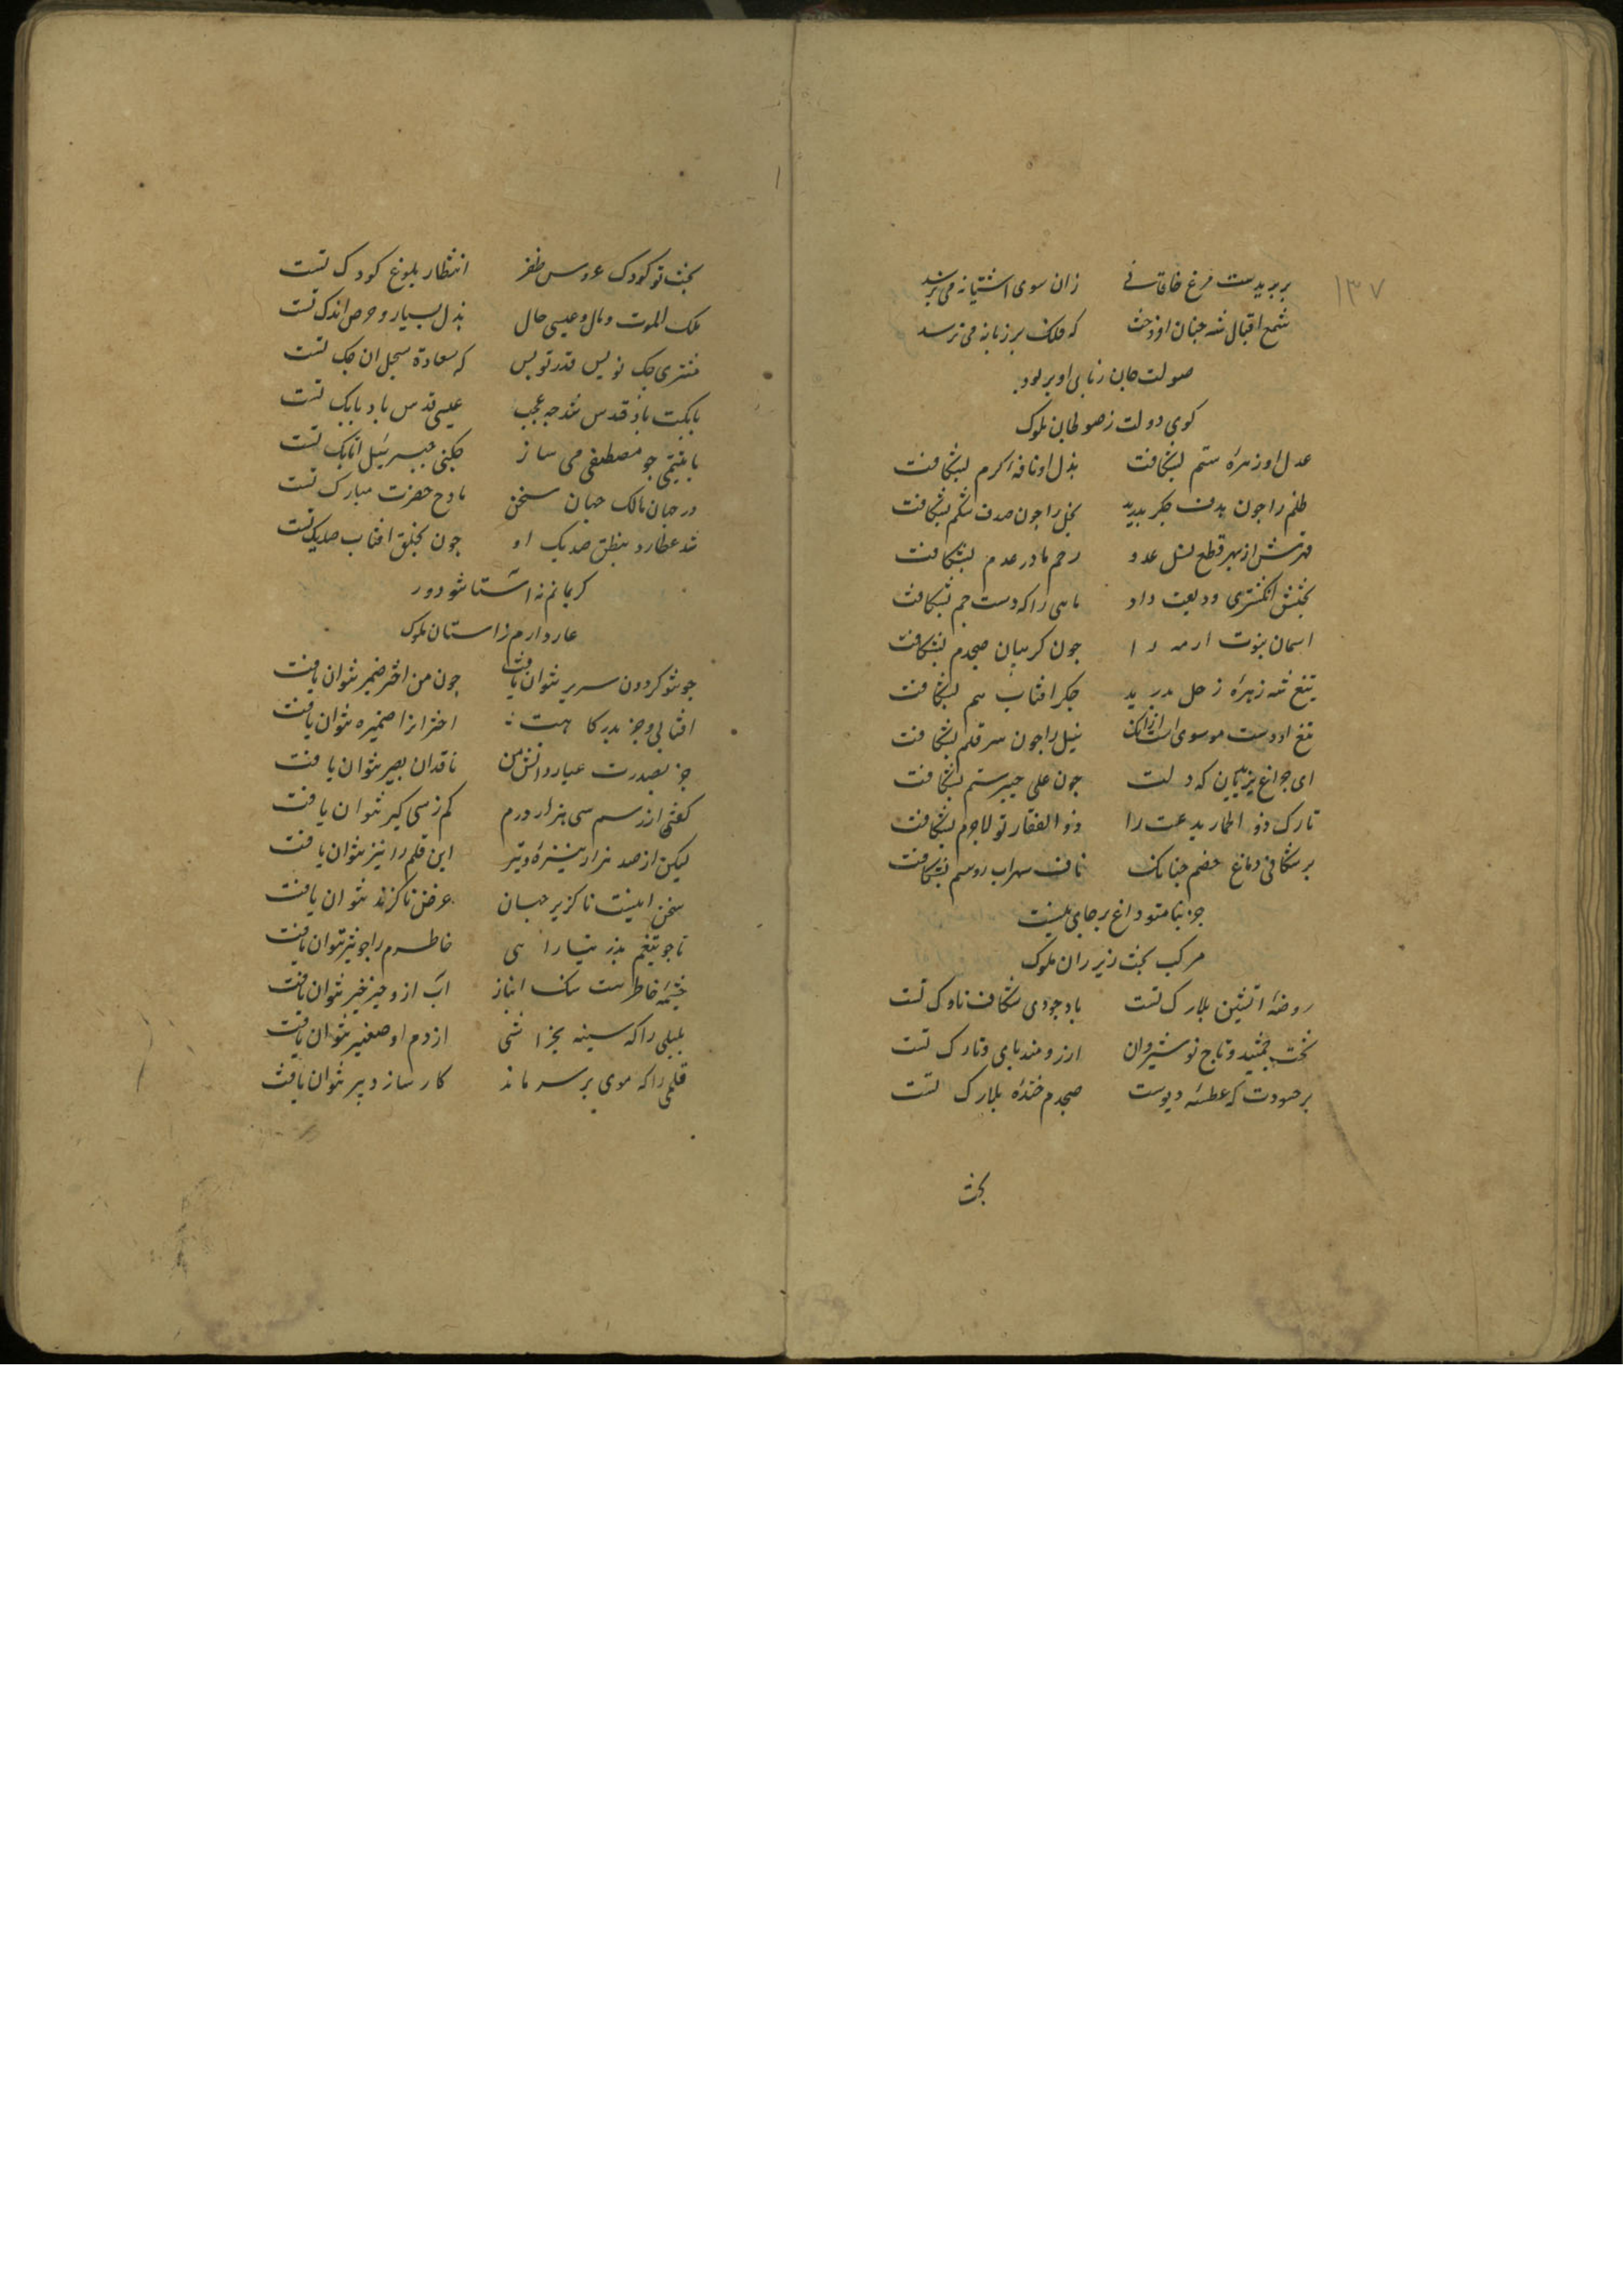 ۱۳۷
بر بریدست مرغ خاقانی زان سوی اشتیانه می نرسد
شمع اقبال شه جنان افروخت که فلک بر زبانه می نرسد
صولت جان ربای او بربود
کوی دولت ز صولجان ملوک
عدل او زهرهٔ ستم بشکافت بذل او نافهٔ کرم بشکافت
ظلم را جون هدف جکر بدرید بخل را جون صدف شکم بشکافت
قهرش از بهر قطع نسل عدو رحم مادر عدم بشکافت
بختش انکشتری ودیعت داد ماهی را که دست جم بشکافت
اسمان نبوت ار مه را جون کریبان صبحدم بشکافت
تیغ شه زهرهٔ زحل بدرید جکر افتاب هم بشکافت
تیغ او دست موسوی است از انک نیل را جون سر قلم بشکافت
ای جراغ یزیدیان که دلت جون علی خیبر ستم بشکافت
تارک ذو الخمار بدعت را ذو الفقار تو لاجرم بشکافت
بر شکافی دماغ خصم جنانک ناف سهراب روستم بشکافت
جز بنام تو داغ بر جای نیست
مرکب بخت زیر ران ملوک
روضهٔ اتشین بلارک تست باد جودی شکاف ناوک تست
تخت جمشید و تاج نوشیروان ارزومند بای و تارک تست
بر حسودت که عطسهٔ دیوست صبحدم خندهٔ بلارک تست
بخت
بخت تو کودک عروس ظفر انتظار بلوغ کودک تست
ملک الموت و مال و عیسی حال بذل بسیار و حرص اندک تست
مشتری جک نویس قدر تو بس که سعادة سجل ان جک تست
بابکت باد قدس شد جه عجب عیسی قدس باد بابک تست
با یتیمی جو مصطفی می ساز جکنی جبرئیل اتابک تست
در جهان مالک جهان سخن مادح حضرت مبارک تست
شد عطارد بنطق صد یک او جون بخلق افتاب صد یک تست
کر بمانم نه اشنا شو دور
عار دارم ز استان ملوک
جو تو کردون سریر نتوان یافت جون من اختر ضمیر نتوان یافت
افتابی و جز بدرکاهت اختر انرا ضمیره نتوان یافت
جز بصدرت عیار دانش من ناقدان بصیر نتوان یافت
کفتی از رسم سی هزار درم کم ز سی کیر نتوان یافت
لیکن از صد هزار نیزه و تیر این قلم را نیز نتوان یافت
سخن اینست ناکزیر جهان عوض ناکزیر نتوان یافت
تا جو تیغم نیارا یی خاطرم را جو تیر نتوان یافت
چشمهٔ خاطرست سنک انباز اب ازو خیر خیر نتوان یافت
بلبلی را که سینه بخراشی از دم او صفیر نتوان یافت
قلمی را که موی بر سر ماند کار ساز دبیر نتوان یافت